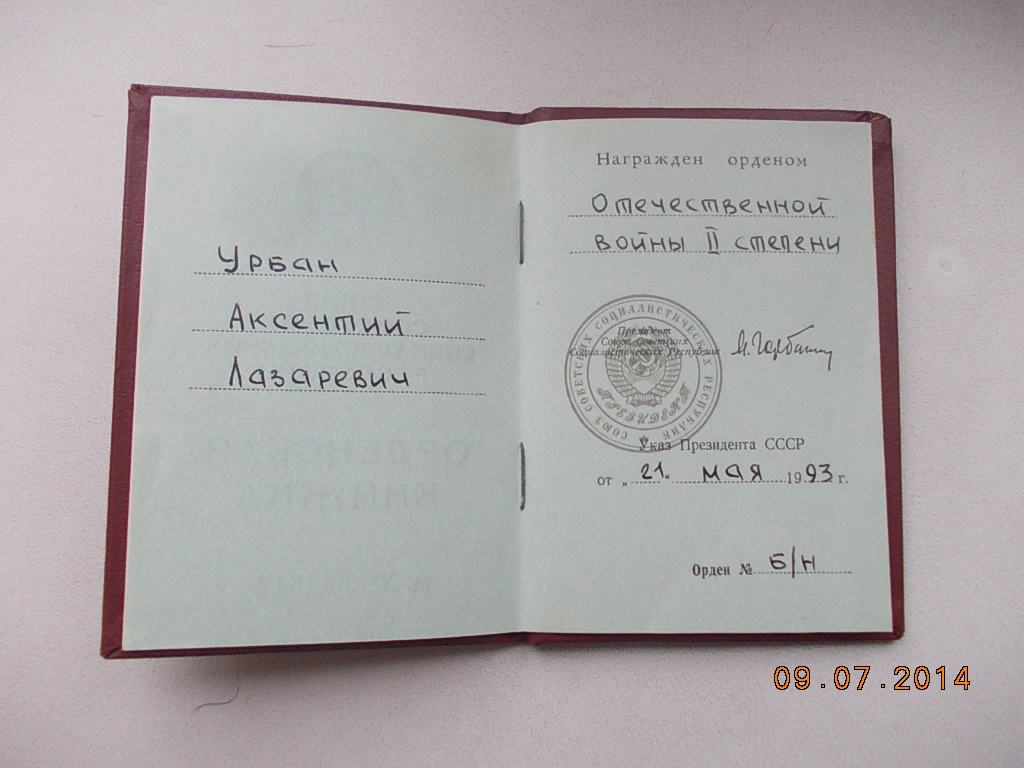 Урбан
Аксентий
Лазаревич
Награжден орденом
Отечественной
войны II степени
СОЮЗ СОВЕТСКИХ СОЦИАЛИСТИЧЕСКИХ РЕСПУБЛИК
Президент
Союза Советских
Социалистических Республик
М. Горбачев
ПРЕЗИДЕНТ
Указ Президента СССР
от „21“ мая 1993 г.
Орден № Б/Н
09.07.2014